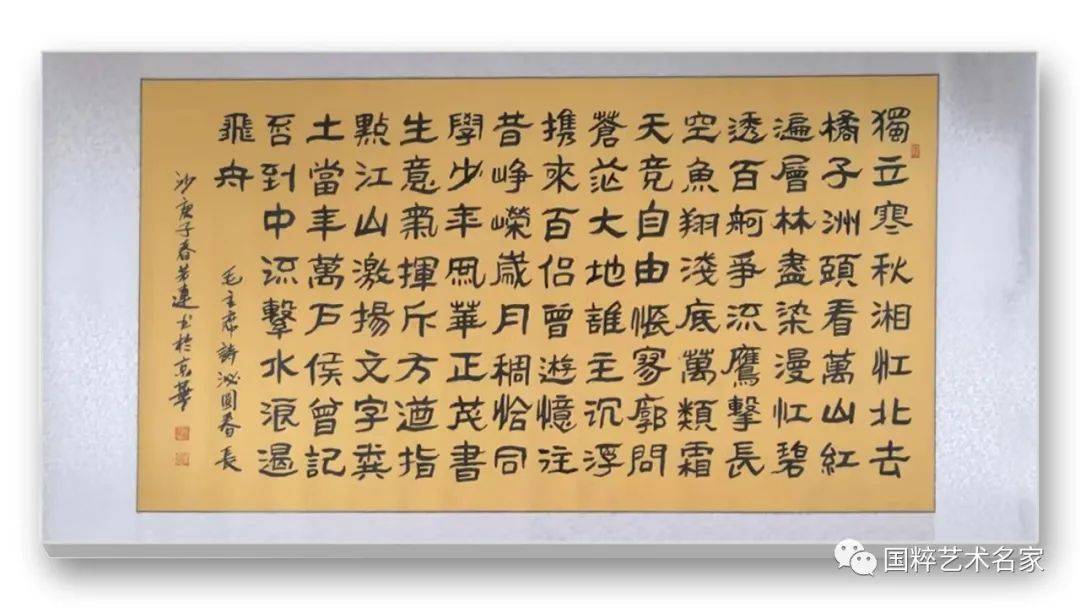 獨立寒秋湘江北去
橘子洲頭看萬山紅
遍層林盡染漫江碧
透百舸爭流鷹擊長
空魚翔淺底萬類霜
天竞自由悵寥廓問
蒼茫大地誰主沉浮
携來百侣曾遊憶往
昔崢嶸歲月稠恰同
學少年風華正茂書
生意氣揮斥方遒指
點江山激揚文字糞
土當年萬户侯曾記
否到中流擊水浪遏
飛舟
毛主席詩沁園春長
沙庚子春連书於京華
国粹艺术名家